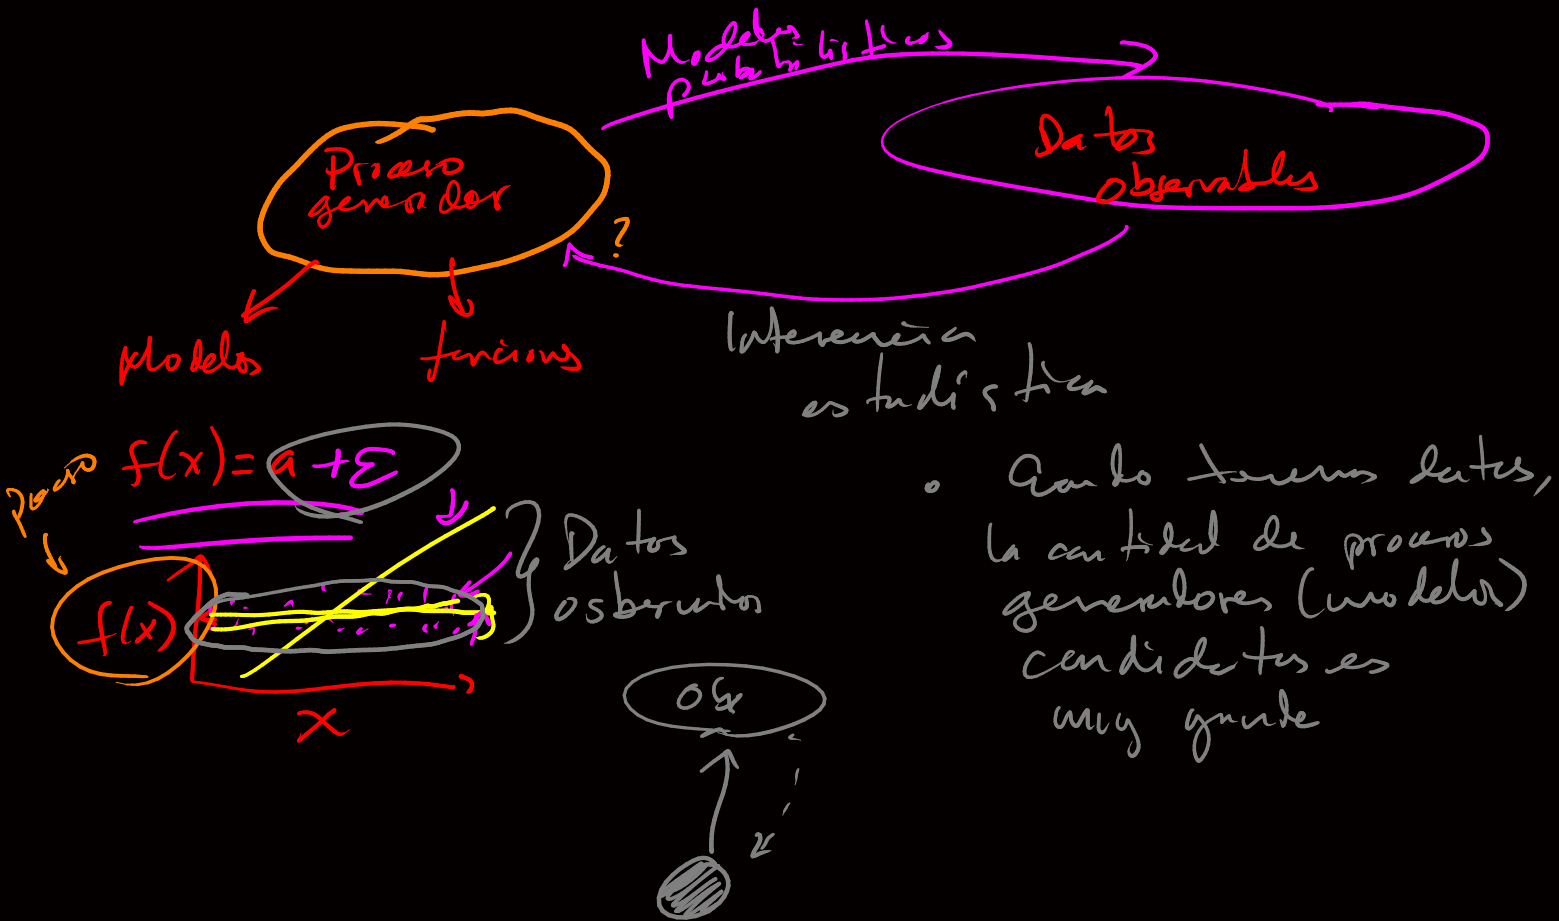 Modelos
probabilísticos
Datos
observables
Proceso
generador
?
Modelos
funciones
Inferencia
estadística
Proceso
f(x) = a + ε
f(x)
x
Datos
osbervados
• Cuando tenemos datos,
la cantidad de procesos
generadores (modelos)
candidatos es
muy grande